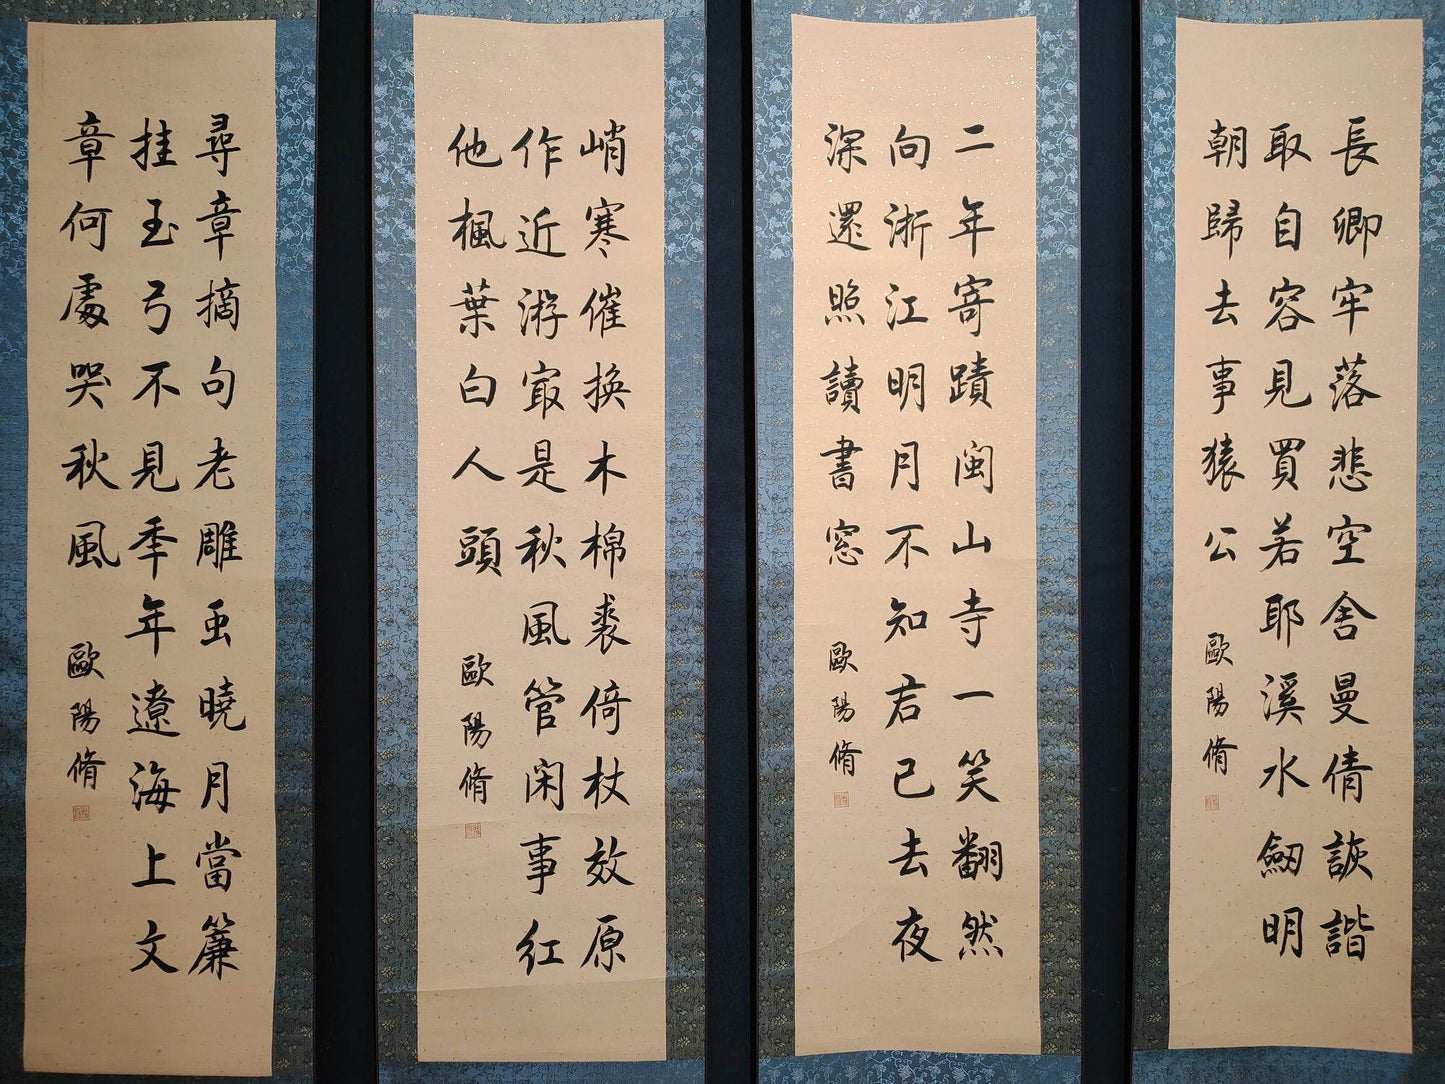 長卿牢落悲空舍曼倩詼諧
取自容見買若耶溪水劒明
朝歸去事猿公
歐陽脩
二年寄蹟閩山寺一笑翻然
向淅江明月不知君已去夜
深還照讀書窓
歐陽脩
峭寒催換木棉裘倚杖效原
作近游㝡是秋風管闲事紅
他楓葉白人頭
歐陽脩
尋章摘句老雕䖝曉月當簾
挂玉弓不見年年遼海上文
章何處哭秋風
歐陽脩